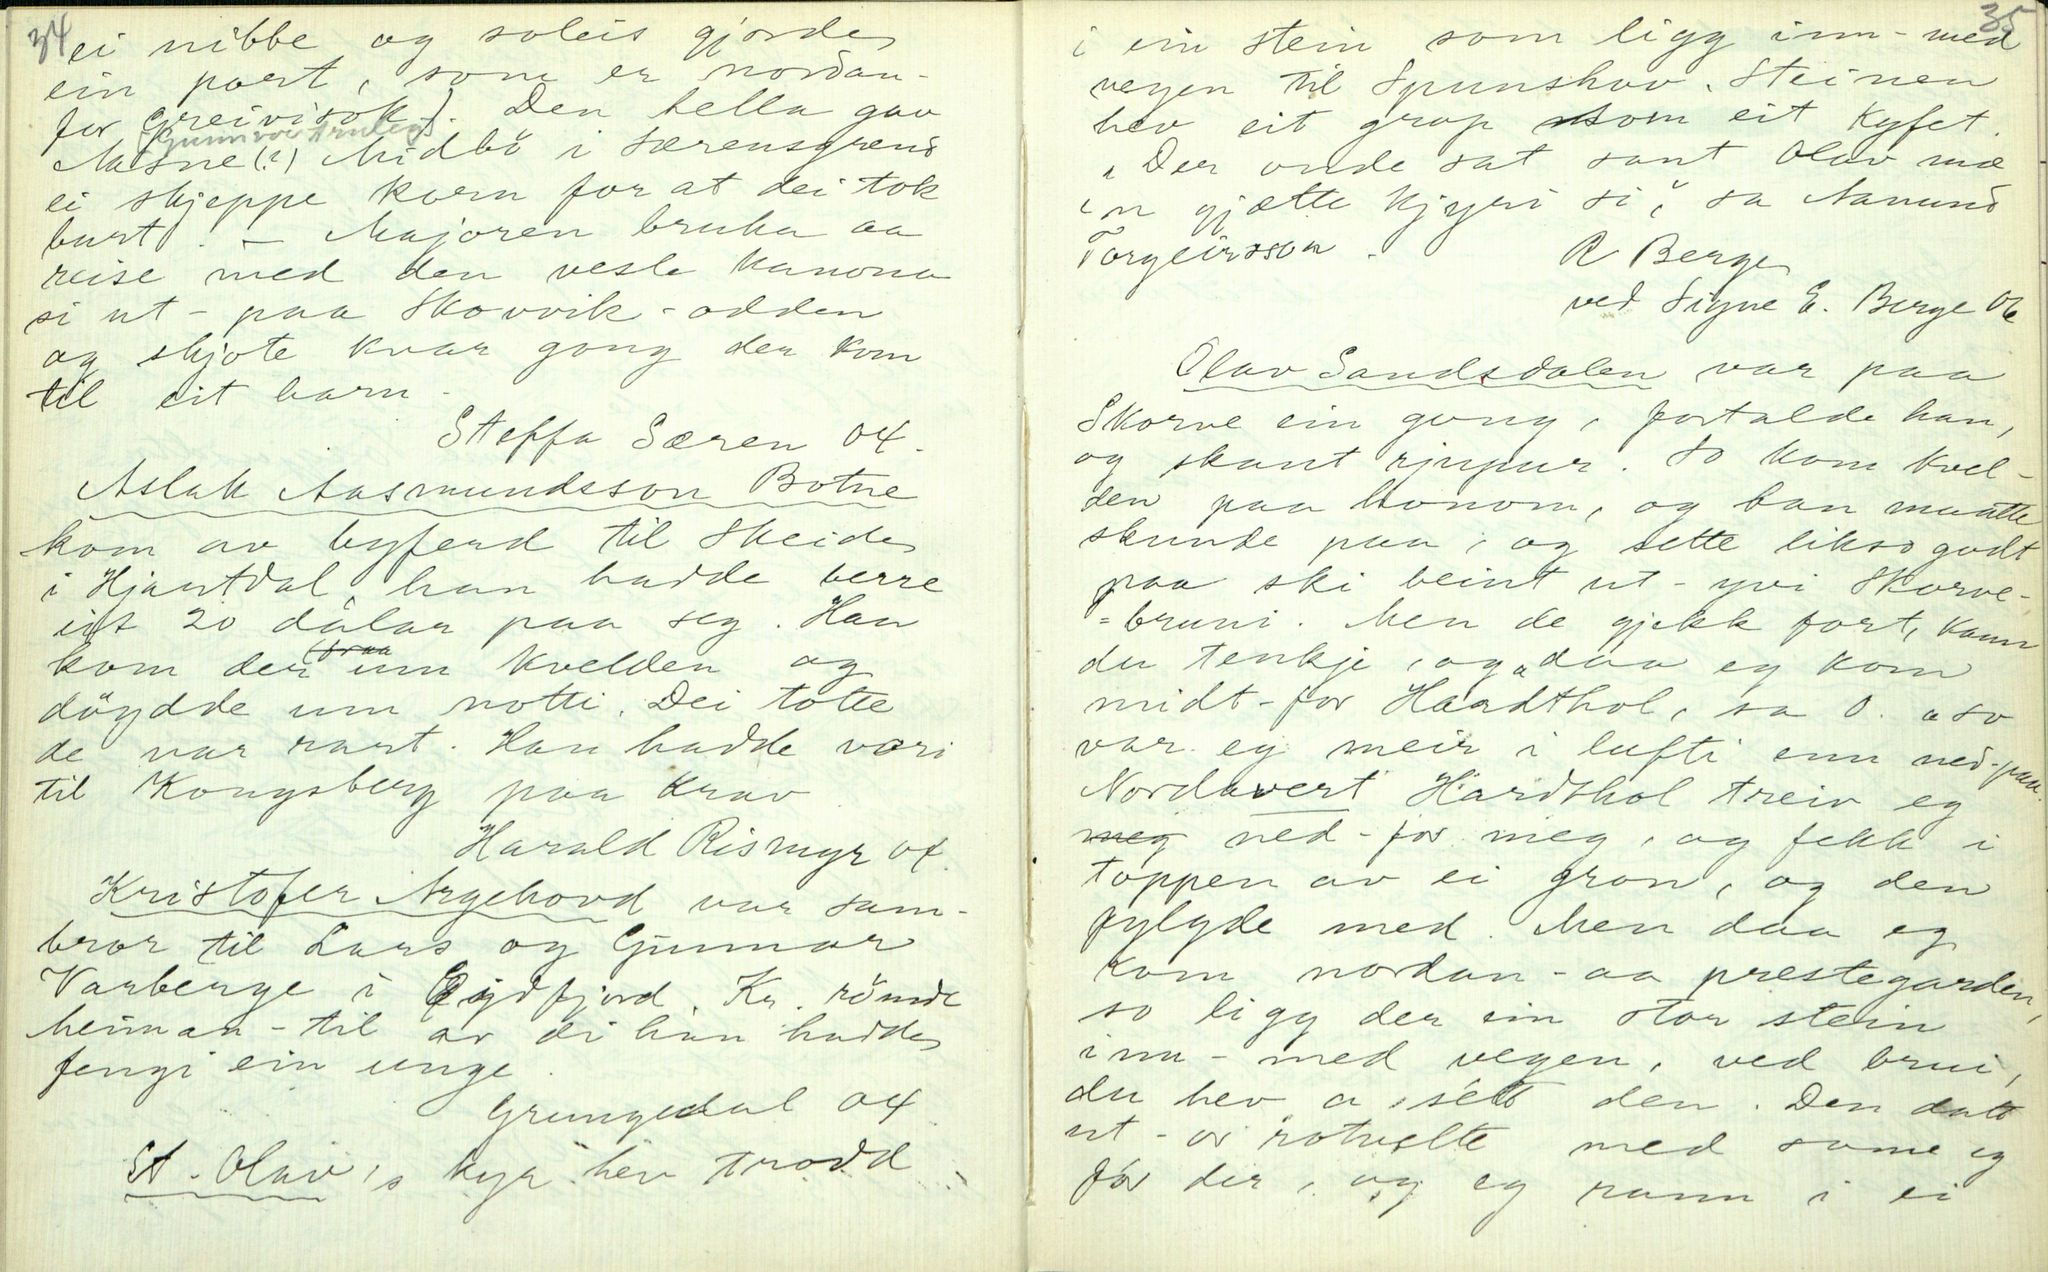 34
ei nibbe og soleis gjorde
ein port, som er nordan-
for Greivisok). Den hella gav
(Gunnvor truleg)
Aasne (?) Midbö i Særensgrend
ei skjeppe korn for at dei tok
burt. - Majoren bruka aa
reise med den vesle kanona
si ut - paa Skovvik - odden
og skjote kvar gong der kom
til eit barn -
Steffa Særen 04.
Aslak Aasmundsson Botne
kom av byferd til Skeide
i Hjartdal, han hadde berre
eit 20 dalar paa seg. Han
kom der um kvelden og
döydde um notti. Dei totte
de var rart. Han hadde vori
til Kongsberg paa krav
Harald Rismyr 04.
Kristofer Argehovd var sam-
bror til Lars og Gunnar
Varberge i Eidfjord. Kr. römde
heiman - til av di han hadde
fengi ein unge.
Grungedal 04
St. Olav's kyr hev trødd
35
i ein stein som ligg inn - med
vegen til Spunshov. Steinen
hev eit grop som eit kyfet.
"Der onde sat sant Olav mæ
en gjætte kjyri si", sa Aanund
Torgeirsson.
R Berge
ved Signe E. Berge 06
Olav Sandsdalen var paa
Skorve ein gong, fortalde han,
og skaut rjupur. So kom kvel-
den paa honom, og han maatte
skunde paa, og sette likso godt
paa ski beint ut - yvi Skorve-
=bruni. Men de gjekk fort, kann
du tenkje, og "daa eg kom
midt - for Hardthol, sa O. "so
var eg meir i lufti enn ned-paa.
Nordavert Hardthol treiv eg
meg ned - for meg, og fekk i
toppen av ei gron, og den
fylgde med. Men daa eg
kom nordan - aa prestegarden,
so ligg der ein stor stein
inn - med vegen, ved brui,
du hev a sett den. Den datt
ut - or rotvelte med same eg
for der, og eg rann i ei